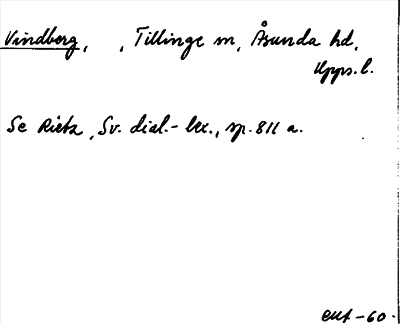 Vindberg, , Tillinge sn, Åsunda hd,
Upps. l.
Se Rietz, Sv. dial.-lex., sp. 811 a.
-60.